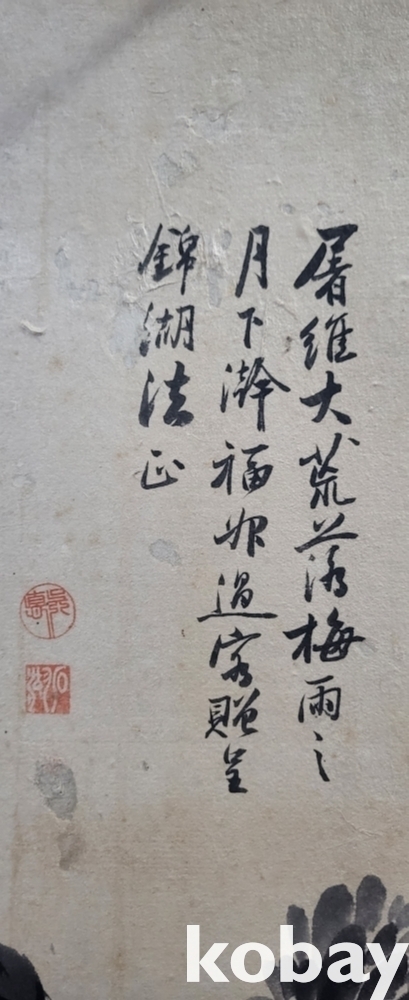 屠維大荒落梅雨之
月下澣福州過客贈呈
錦湖法正
kobay